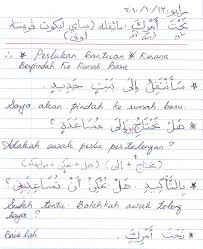 رابو، ٢٠١٠/١٠/١٣
تَحْتَ أَمْرِكَ
* Perlukan Bantuan * Kerana
Berpindah Ke Rumah Baru
سَأَنْتَقِلُ إِلَى بَيْتٍ جَدِيدٍ.
Saya akan pindah ke rumah baru.
هَلْ تَحْتَاجُ إِلَى مُسَاعَدَةٍ؟
Adakah awak perlu pertolongan?
بِالتَّأْكِيدِ. هَلْ يُمْكِنُ أَنْ تُسَاعِدَنِي؟
Sudah tentu. Bolehkah awak tolong
saya?
تَحْتَ أَمْرِكَ.
Baiklah